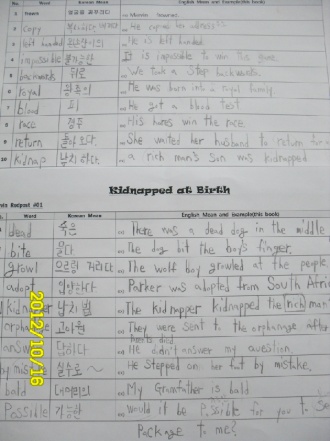 No. Word Korean Mean English Mean and Example(this book)
copy He copied her
left handed 왼손잡이의 He is left handed
impossible 불가능한 It is impossible to win this game.
backwards 뒤로 We took a step backwards.
royal 왕족의 He was born into a royal family.
7 blood 피 He got a blood test
8 race 경주 His horse win the race.
9 return 돌아오다. She waited her husband to return for
10 kidnap 납치하다. a rich man's son was kidnapped
Kidnapped at Birth
#01
Word Korean Mean English Mean and Example(this book)
dead 죽은 There was a dead dog in the middle
bite 물다 The dog bit the boy's finger.
growl 으르렁 거리다 The wolf boy growled at the people.
adopt 입양하다 Parker was adopted from South Afri
kidnapper 납치범 The kidnapper kidnapped the rich man'
orphanage 고아원 They were sent to the orphanage after
answer 답하다 He didn't answer my question.
by mistake 실수로~ He stepped on her foot by mistake.
bald 대머리의 My Granfather is bald
Possible 가능한 Would it be possible for you to se
Package to me?
2012/10/16